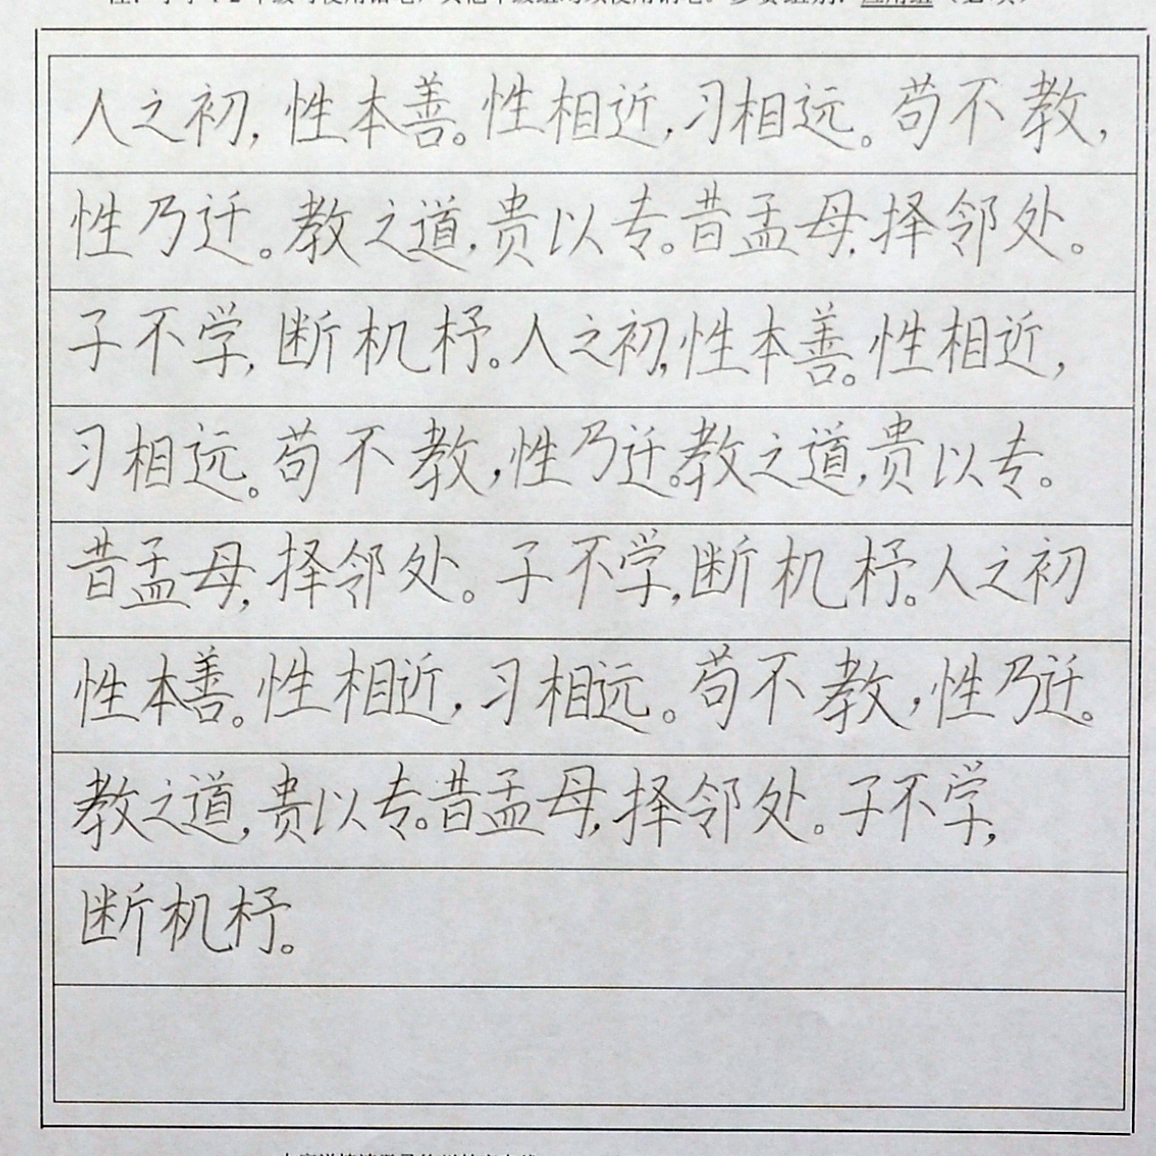 人之初,性本善。性相近,习相远。苟不教,
性乃迁。教之道,贵以专。昔孟母,择邻处。
子不学,断机杼。人之初,性本善。性相近,
习相远。苟不教,性乃迁。教之道,贵以专。
昔孟母,择邻处。子不学,断机杼。人之初
性本善。性相近,习相远。苟不教,性乃迁。
教之道,贵以专。昔孟母,择邻处。子不学,
断机杼。